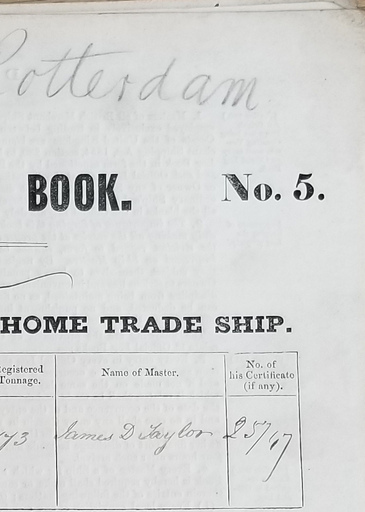 Rotterdam
BOOK. No. 5.
HOME TRADE SHIP.
egistered Tonnage. Name of Master. No. of his Certificate (if any).
73 James D Taylor